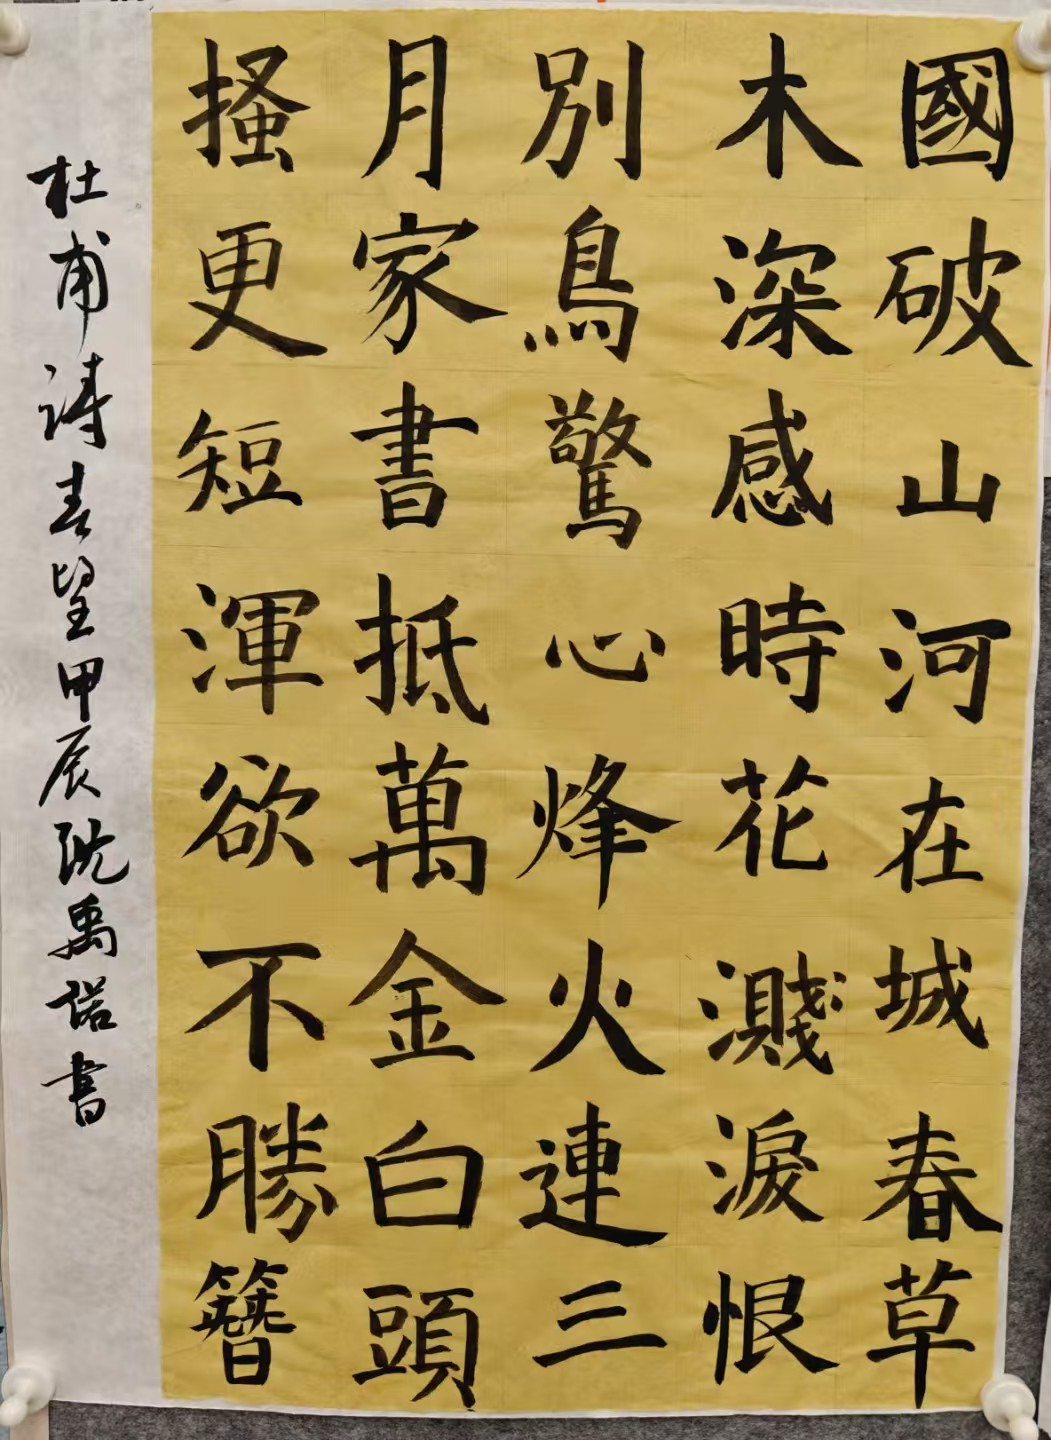 國破山河在城春草
木深感時花濺淚恨
別鳥驚心烽火連三
月家書抵萬金白頭
搔更短渾欲不勝簪
杜甫诗春望甲辰沈禹诺书